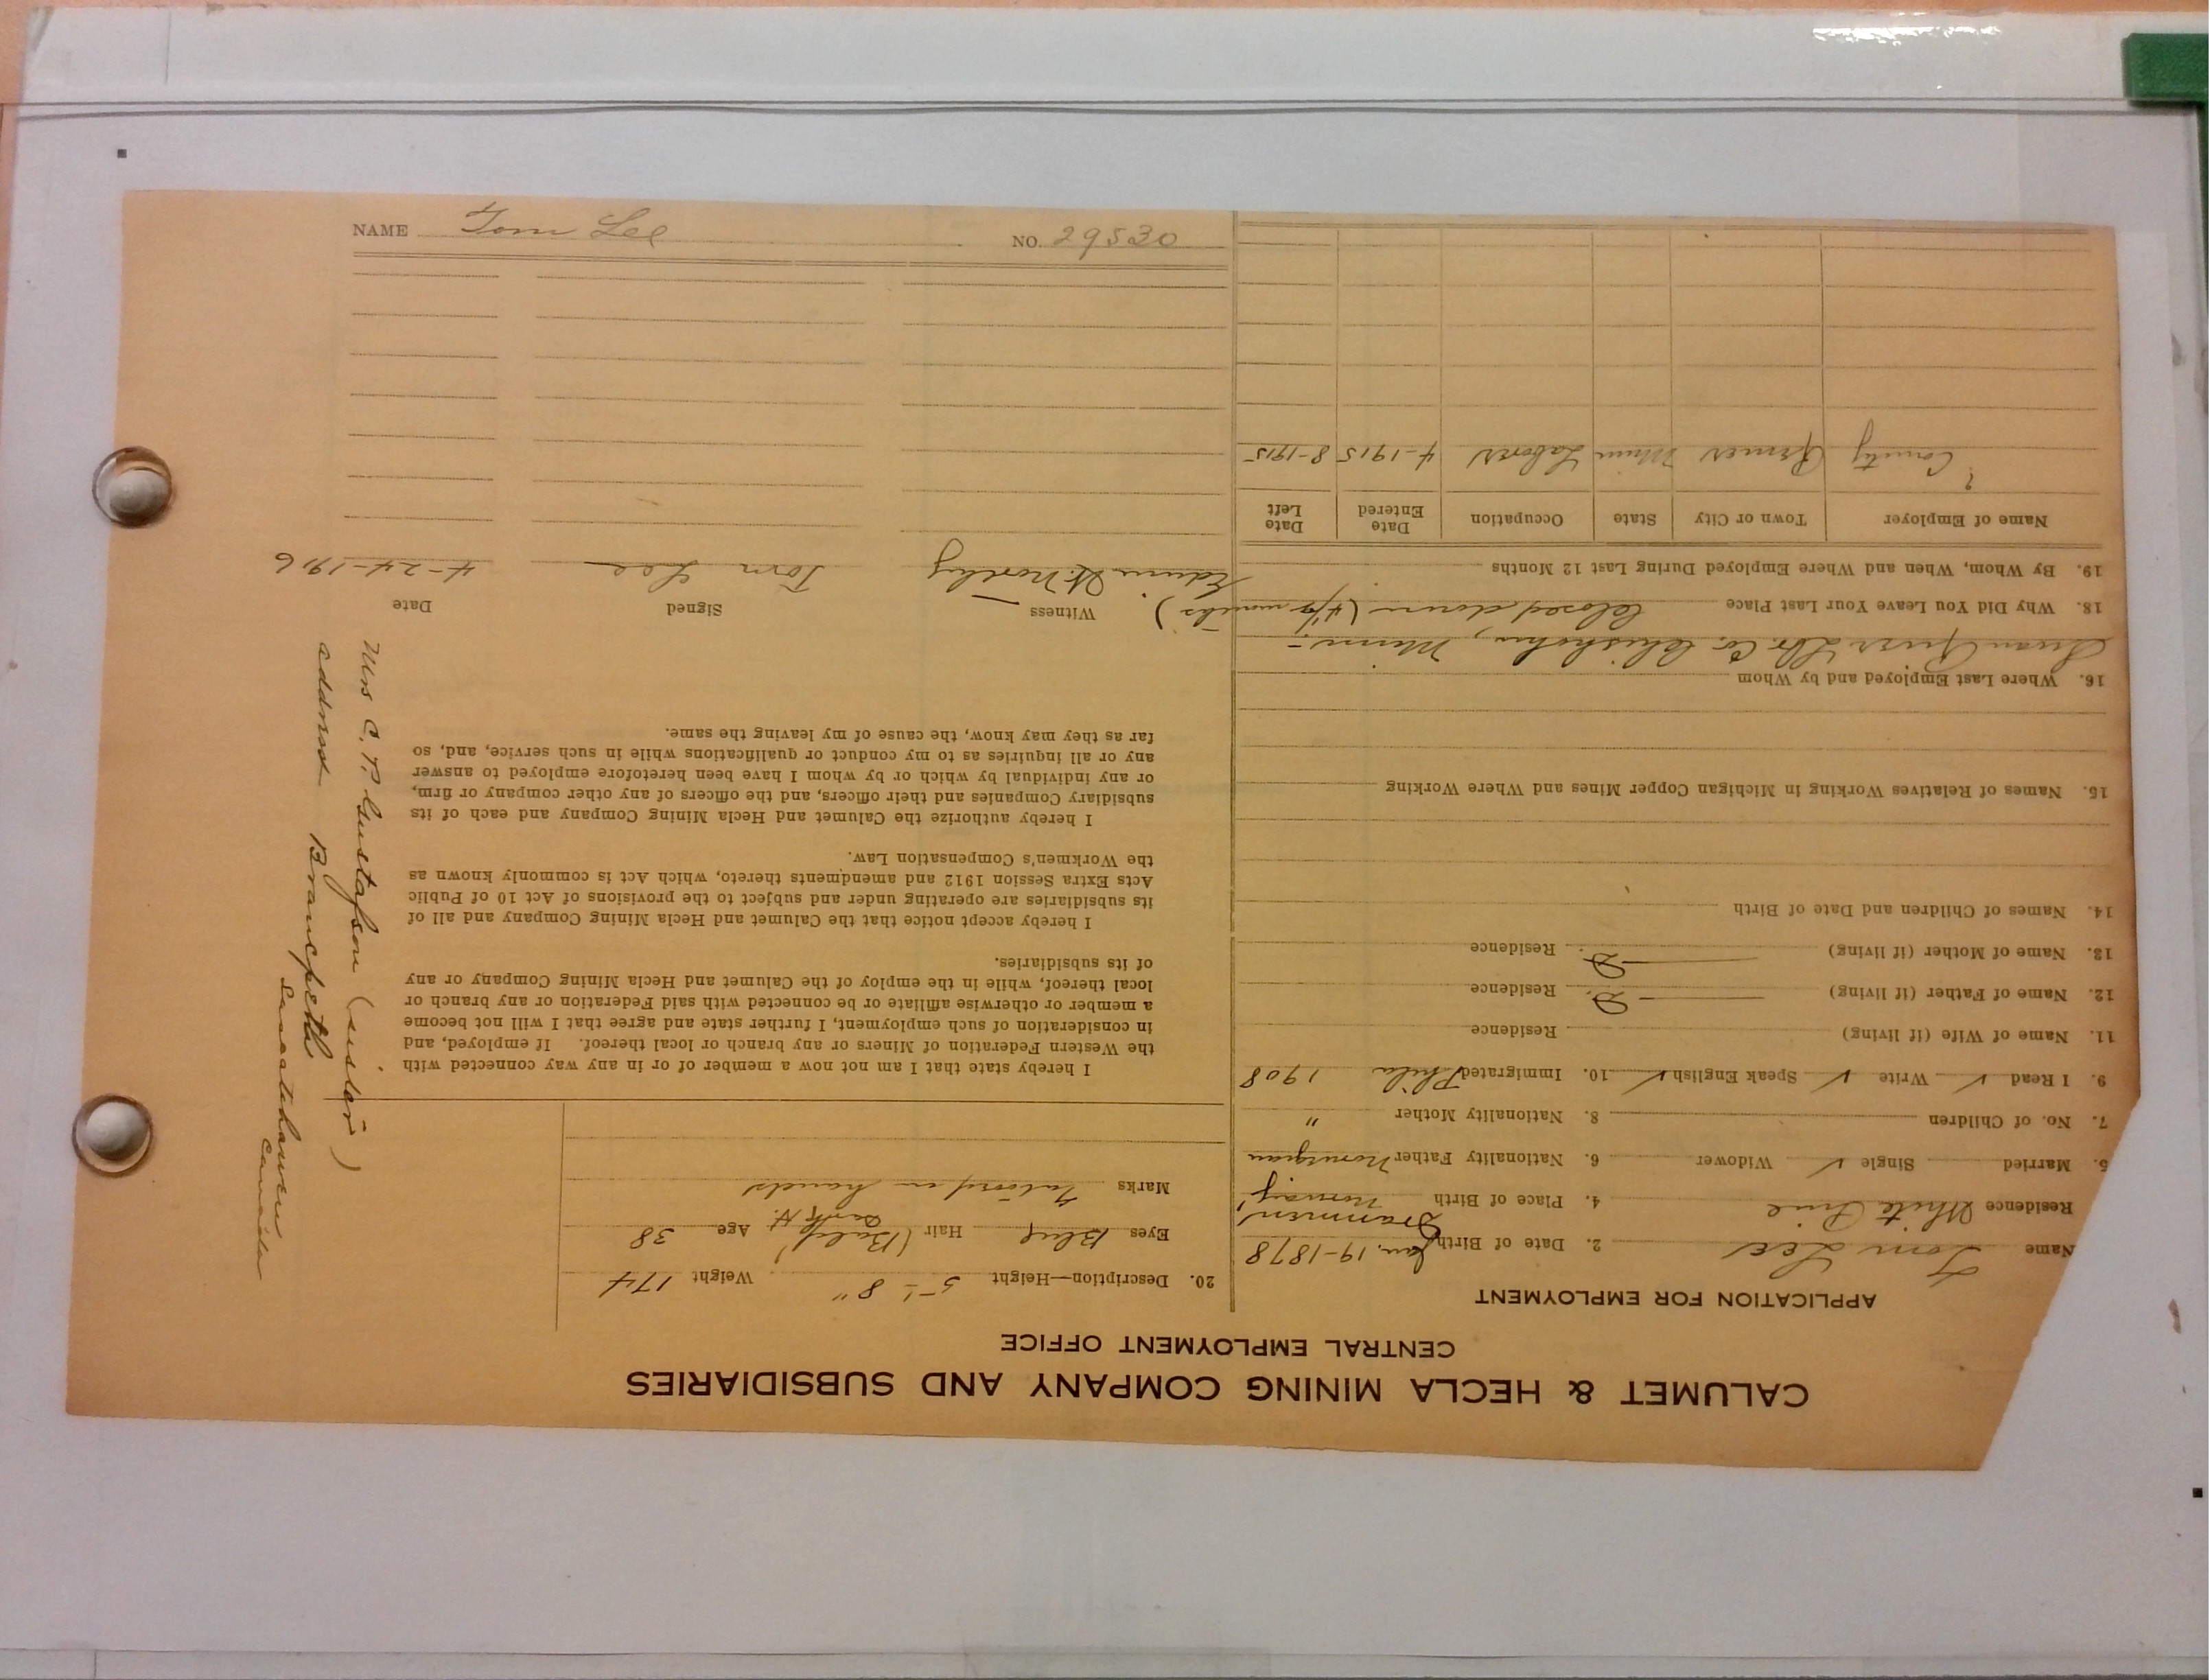 CALUMET & HECLA MINING COMPANY AND SUBSIDIARIES
CENTRAL EMPLOYMENT OFFICE
APPLICATION FOR EMPLOYMENT
Name Tom Lee 2. Date of Birth Jan. 19-1878
Residence White Pine 4. Place of Birth Drammen, Norway
5. Married Single ✓ Widower 6. Nationality Father Norwegian
7. No. of Children 8. Nationality Mother "
9. I Read ✓ Write ✓ Speak English ✓ 10. Immigrated Phila 1908
11. Name of Wife (if living) Residence
12. Name of Father (if living) D. Residence
13. Name of Mother (if living) D. Residence
14. Names of Children and Date of Birth
15. Names of Relatives Working in Michigan Copper Mines and Where Working
16. Where Last Employed and by Whom
Co. Chisholm, Minn.
18. Why Did You Leave Your Last Place Closed down (4½ months)
19. By Whom, When and Where Employed During Last 12 Months
Name of Employer Town or City State Occupation Date Entered Date Left
? County Minn Laborer 4-1915 8-1915
20. Description—Height 5'-8" Weight 174
Eyes Blue Hair (Bald) Dark Age 38
Marks on hands
I hereby state that I am not now a member of or in any way connected with
the Western Federation of Miners or any branch or local thereof. If employed, and
in consideration of such employment, I further state and agree that I will not become
a member or otherwise affiliate or be connected with said Federation or any branch or
local thereof, while in the employ of the Calumet and Hecla Mining Company or any
of its subsidiaries.
I hereby accept notice that the Calumet and Hecla Mining Company and all of
its subsidiaries are operating under and subject to the provisions of Act 10 of Public
Acts Extra Session 1912 and amendments thereto, which Act is commonly known as
the Workmen's Compensation Law.
I hereby authorize the Calumet and Hecla Mining Company and each of its
subsidiary Companies and their officers, and the officers of any other company or firm,
or any individual by which or by whom I have been heretofore employed to answer
any or all inquiries as to my conduct or qualifications while in such service, and, so
far as they may know, the cause of my leaving the same.
Witness Signed Date
Edwin Tom Lee 4-24-1916
Mrs C. P. Gustafson (sister)
address Brancpeth
Sascatchawen
Canada
NAME Tom Lee NO. 29530